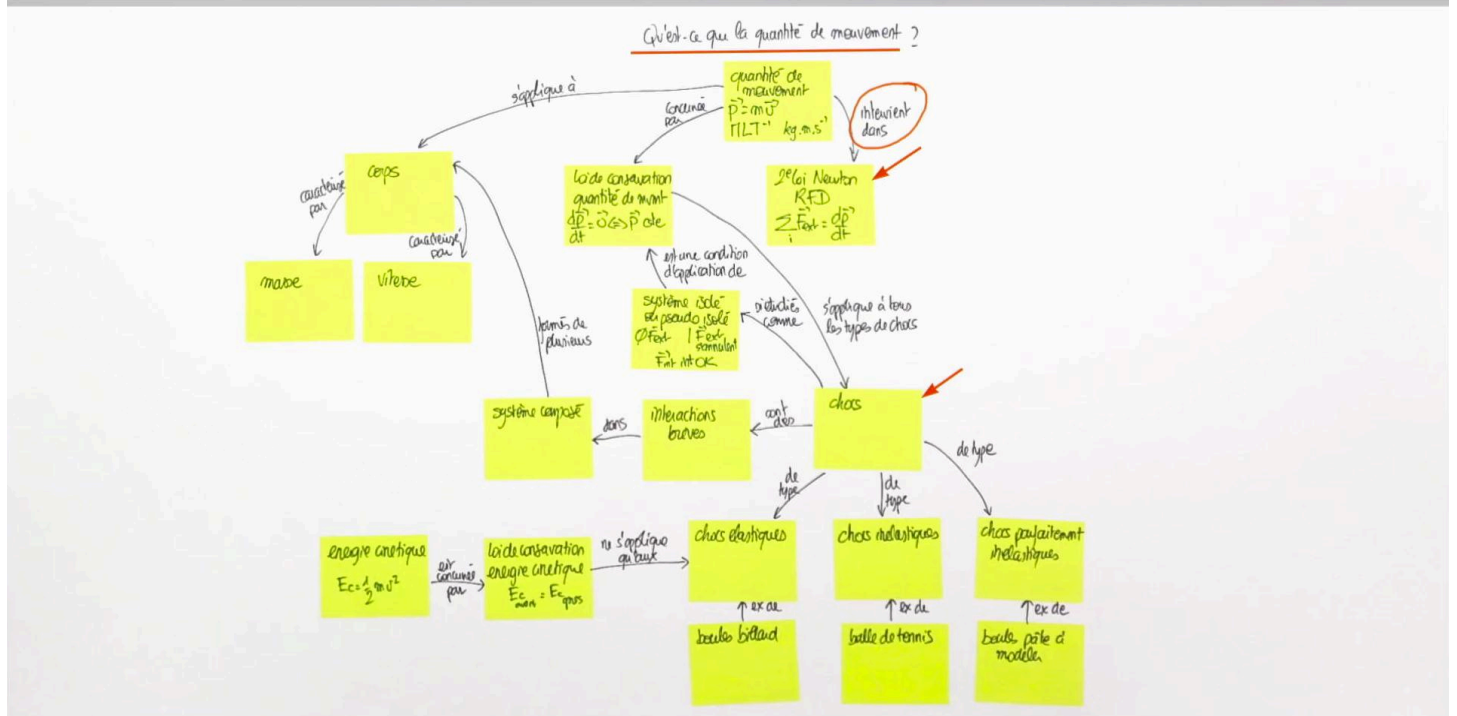 Qu'est-ce que la quantité de mouvement ?
quantité de
mouvement
p⃗ = mv⃗
MLT⁻¹ kg.m.s⁻¹
s'applique à
concernée
par
intervient
dans
corps
caractérisé
par
caractérisé
par
masse
vitesse
loi de conservation
quantité de mvmt
dp⃗/dt = 0⃗ <=> p⃗ cte
2e loi Newton
RFD
∑i F⃗ext = dp⃗/dt
est une condition
d'application de
système isolé
ou pseudo isolé
∅ F⃗ext | F⃗ext
s'annulent
F⃗int OK
si étudiés
comme
s'applique à tous
les types de chocs
formés de
plusieurs
système composé
dans
interactions
brèves
sont
des
chocs
de
type
de
type
de type
énergie cinétique
Ec = 1/2 mv²
est
concernée
par
loi de conservation
énergie cinétique
Ec avant = Ec après
ne s'applique
qu'aux
chocs élastiques
chocs inélastiques
chocs parfaitement
inélastiques
ex de
ex de
ex de
boules billard
balle de tennis
boules pâte à
modeler